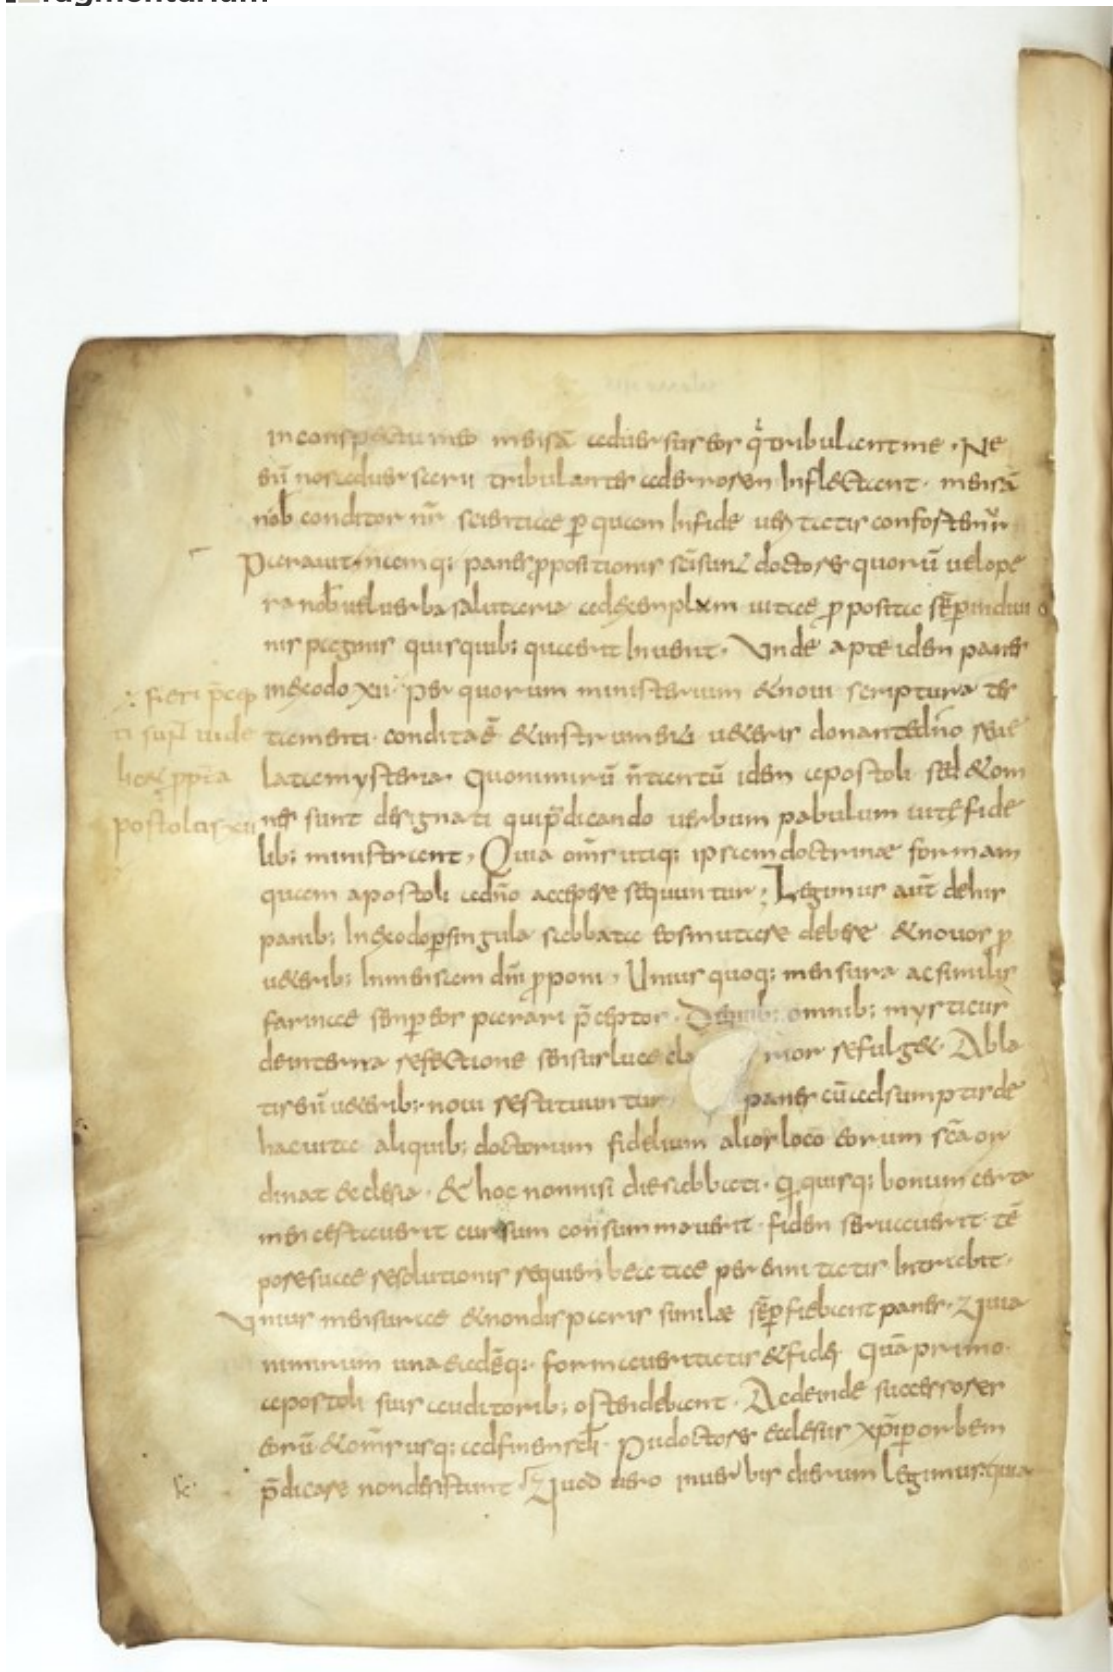 in conspectu meo mensā aduersus eos q̇ tribulant me · Ne
enī nos aduersarii tribulantes ad errorem Inflectant · mensā
nob conditor nr̄ scientiae p quam In fide ueritatis confortemur
Parauit incamq: panes ppositionis sc̄i sunt doctores quorū uel ope
ra nob uel uerba salutaria ad exemplum uitae p posita sēp indiui
nis paginis quisquib: quaerit Inuenit · Vnde apte idem panes
∴ fieri pcep
In exodo xii · Per quorum ministerium & noui scriptura tes
ti sup uide
tamenti · condita ē & instrumenti ueteris donante dn̄o reue
licet pp̄ta
lata mysteria · Quo nimirū n̄ tantū idem apostoli sed & om
postolis xii
nes sunt designati qui p̄dicando uerbum pabulum uitę fide
lib: ministrant, Quia om̄s utiq: ipsam doctrinae formam
quam apostoli a dn̄o accepere sequuntur; Legimus aut̄ de his
panib: In exodo p singula sabbata eos mutare debere & nouos p
ueterib: In mensam dn̄i pponi, Unius quoq: mensura ac similis
farinae semp eos parari p̄ceptor · De quib: omnib: mysticus
de interna refectione sensus luce cla mor refulget · Abla
tis enī ueterib: noui restituuntur panes cū adsumptis de
hac uita aliquib: doctorum fidelium alios loco eorum sc̄a or
dinat ecclesia · & hoc nonnisi die sabbati · q quisq: bonum certa
men certauerit cursum consummauerit · fidem seruauerit · tē
pore suae resolutionis requiem beatae perennitatis Intrabit ·
Vnius mensurae & non disparis similae sēp fiebant panes · Quia
nimirum una eadēq: forma ueritatis & fidei quā primo
apostoli suis auditorib: ostendebant · Ac deinde successores
eorū & om̄s usq: ad finem scl̄i · Pii doctores ecclesiis xp̄i p orbem
p̄dicare non desistunt · Quod uero in uerbis dierum Legimus: quia